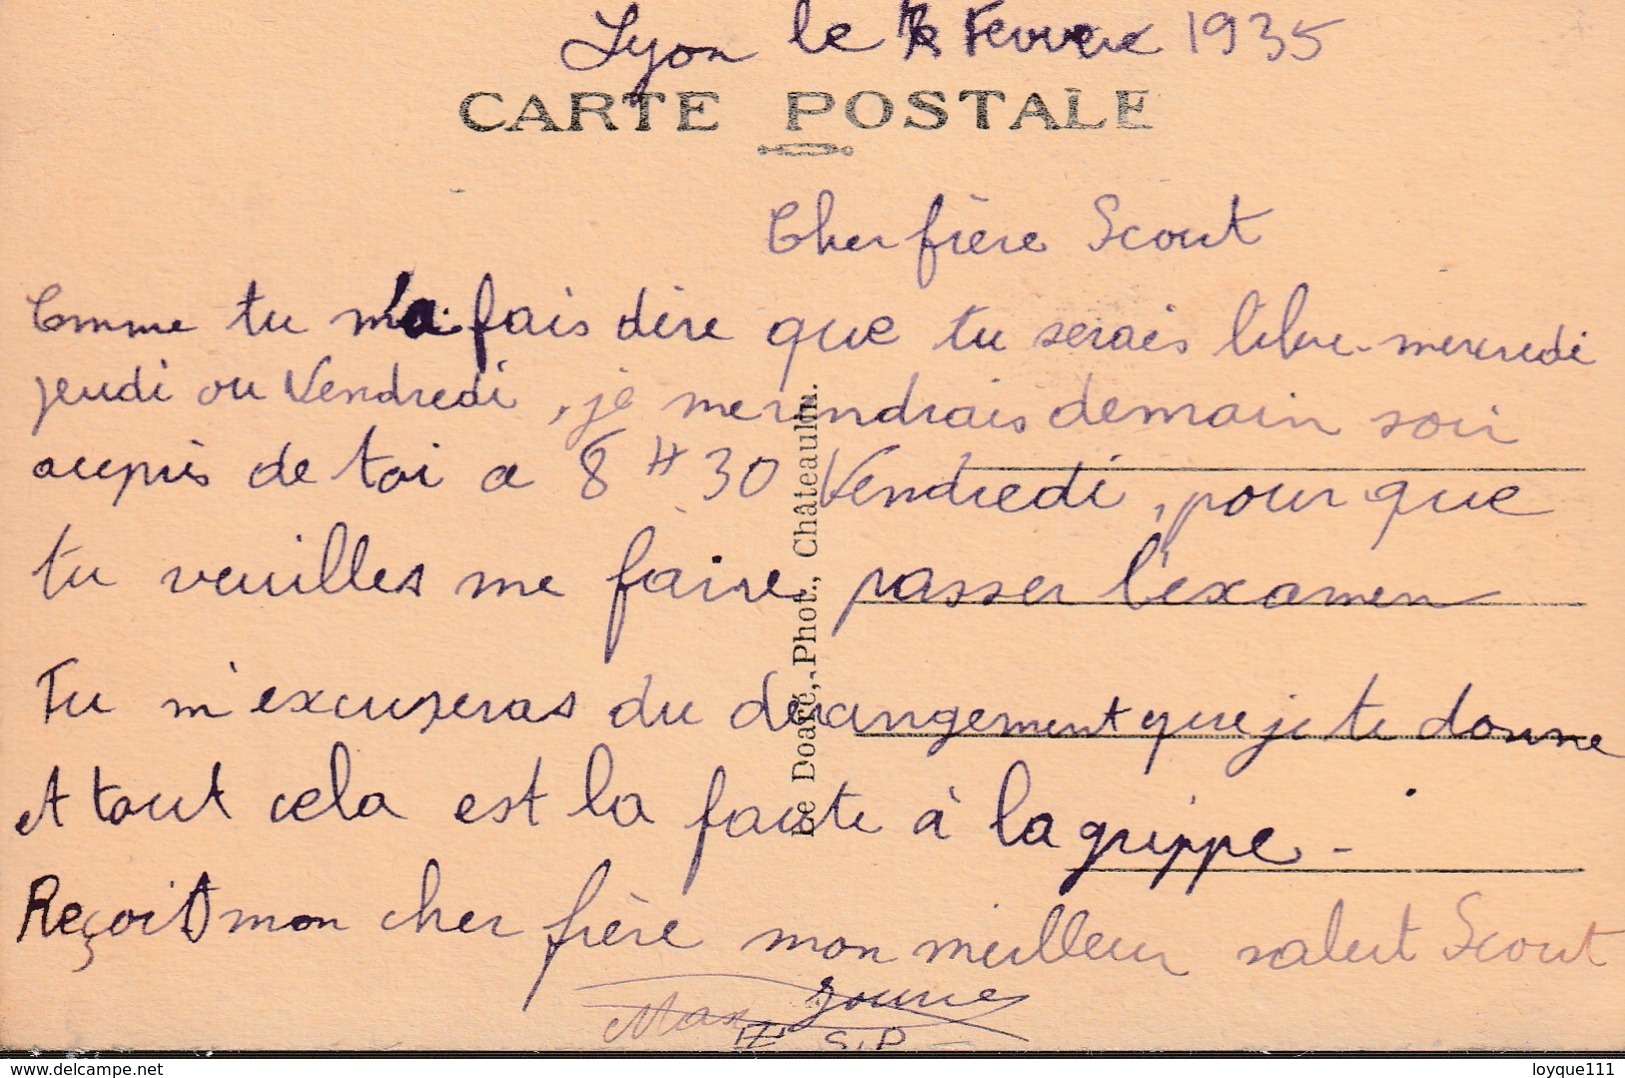 Lyon le Fevrier 1935
CARTE POSTALE
Cher frère Scout
Comme tu m'a fais dire que tu serais libre mercredi
jeudi ou Vendredi, je me rendrais demain soir
auprès de toi a 8 H 30 Vendredi, pour que
tu veuilles me faire passer l'examen
Tu m'excuseras du dérangement que je te donne
et tout cela est la faute à la grippe -
Reçoit mon cher frère mon meilleur salut Scout
Max
S.P
Le Doaré, Phot., Châteaulin.
delcampe.net
loyque111